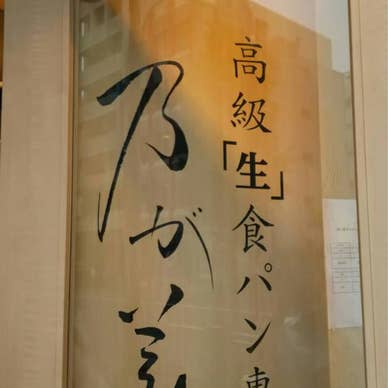 高級「生」食パン専
乃が美